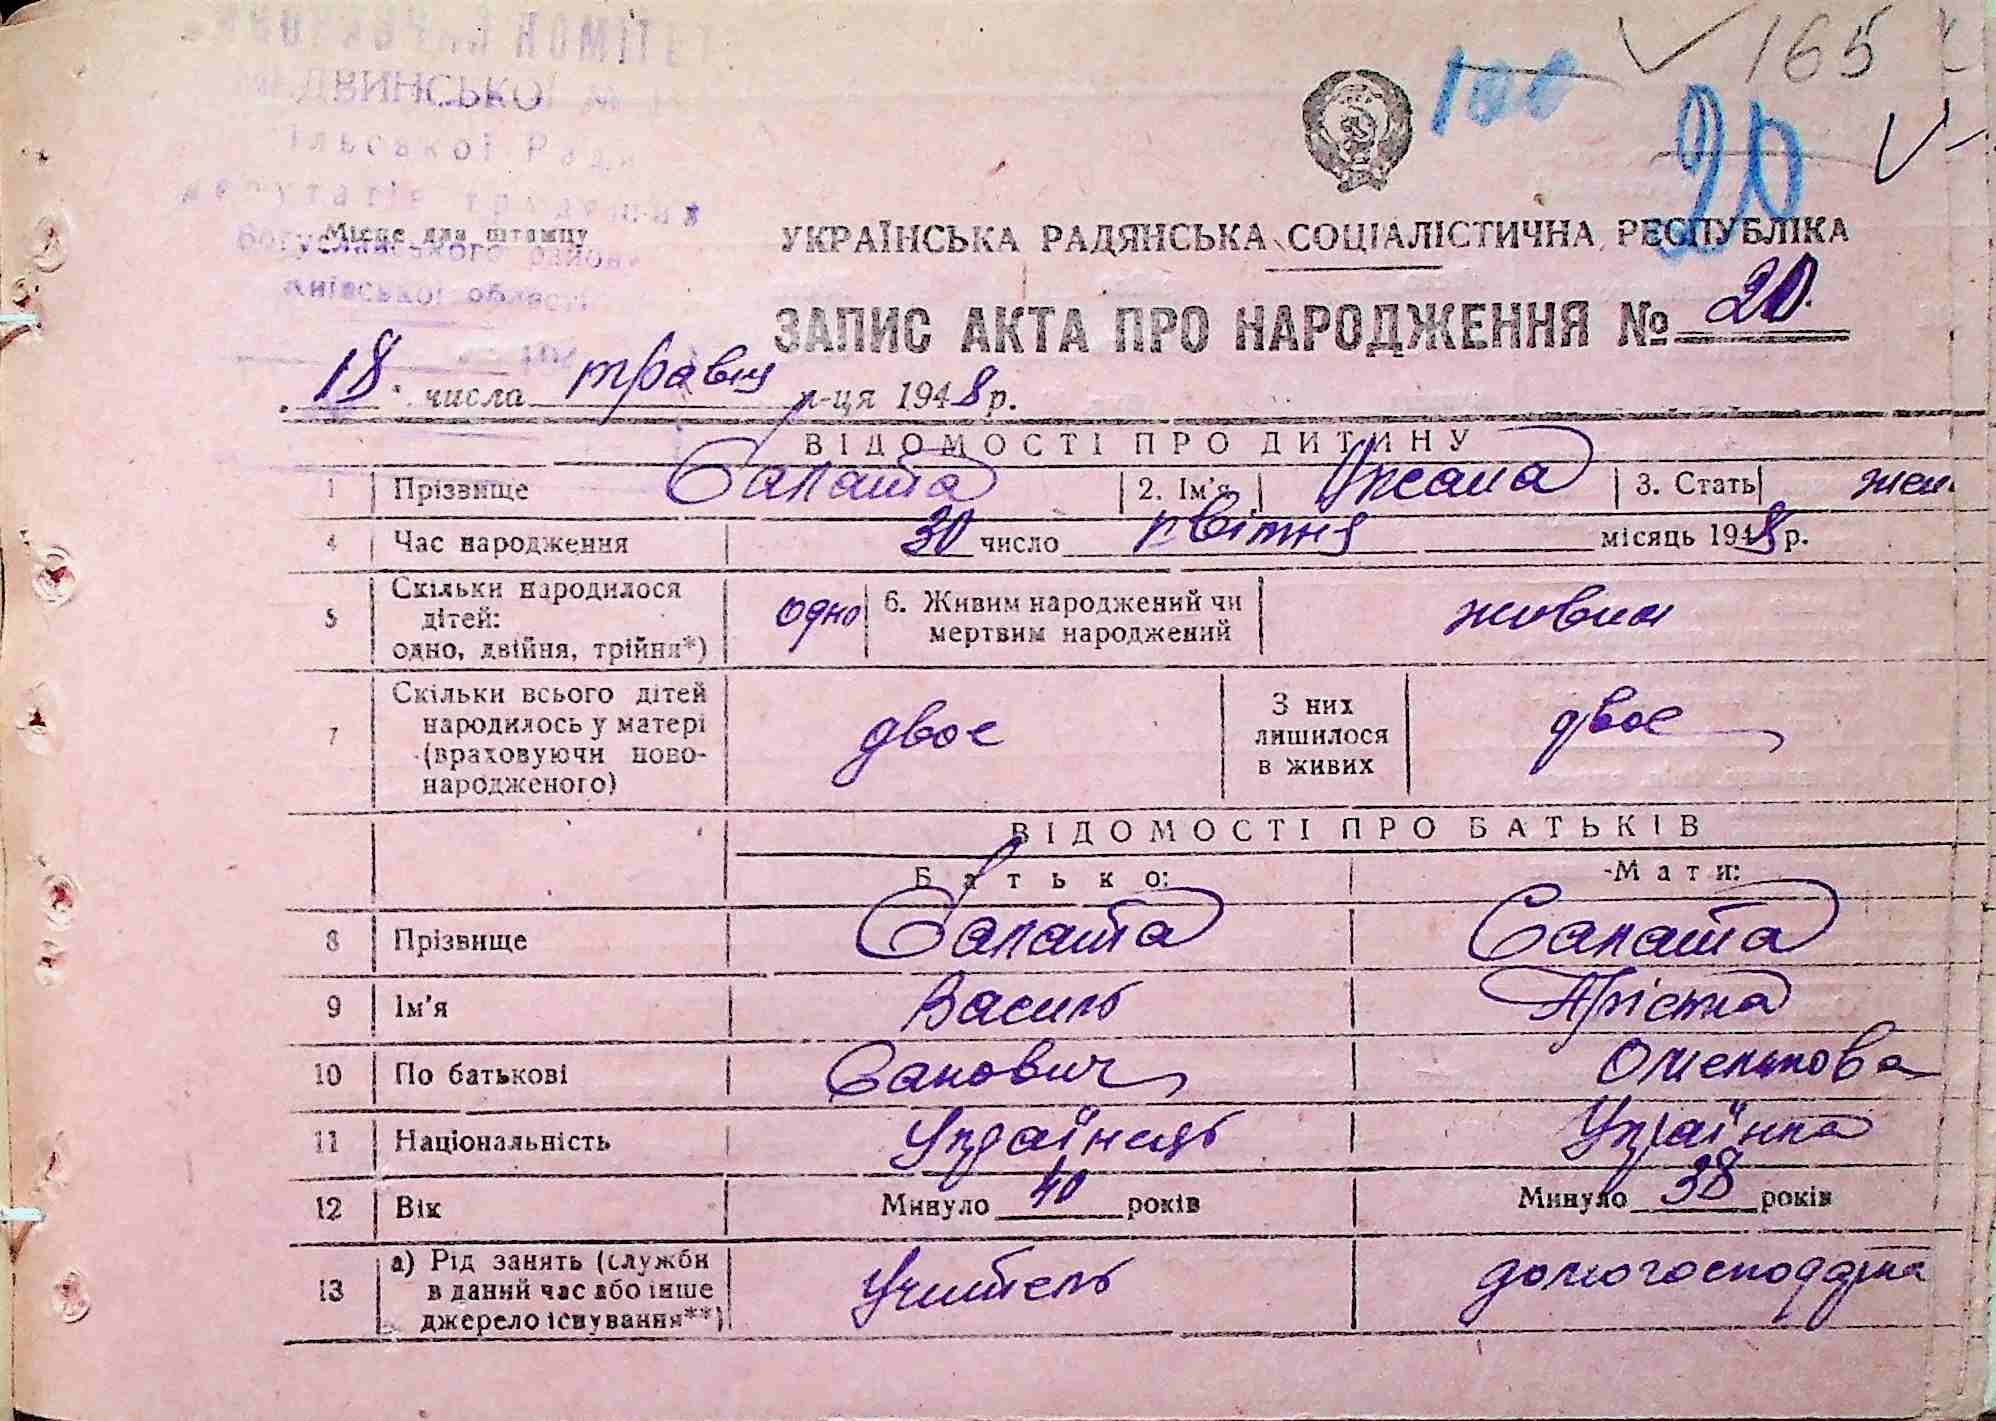 165
100
20
ДВИНСЬКОЇ
ільської Ради
депутатів трудящих
Богуславського району
Київської області
Місце для штампу
УКРАЇНСЬКА РАДЯНСЬКА СОЦІАЛІСТИЧНА РЕСПУБЛІКА
ЗАПИС АКТА ПРО НАРОДЖЕННЯ № 20.
18 числа травня м-ця 1948 р.
ВІДОМОСТІ ПРО ДИТИНУ
1 Прізвище Салата 2. Ім'я Оксана 3. Стать жен.
4 Час народження 30 число квітня місяць 1948 р.
5 Скільки народилося дітей: одно, двійня, трійня*) одно 6. Живим народжений чи мертвим народжений живим
7 Скільки всього дітей народилось у матері (враховуючи новонародженого) двоє З них лишилося в живих двоє
ВІДОМОСТІ ПРО БАТЬКІВ
Батько: Мати:
8 Прізвище Салата Салата
9 Ім'я Василь Христя
10 По батькові Савович Омелькова
11 Національність Українець Українка
12 Вік Минуло 40 років Минуло 38 років
13 а) Рід занять (служби в даний час або інше джерело існування**) Учитель домогосподарка